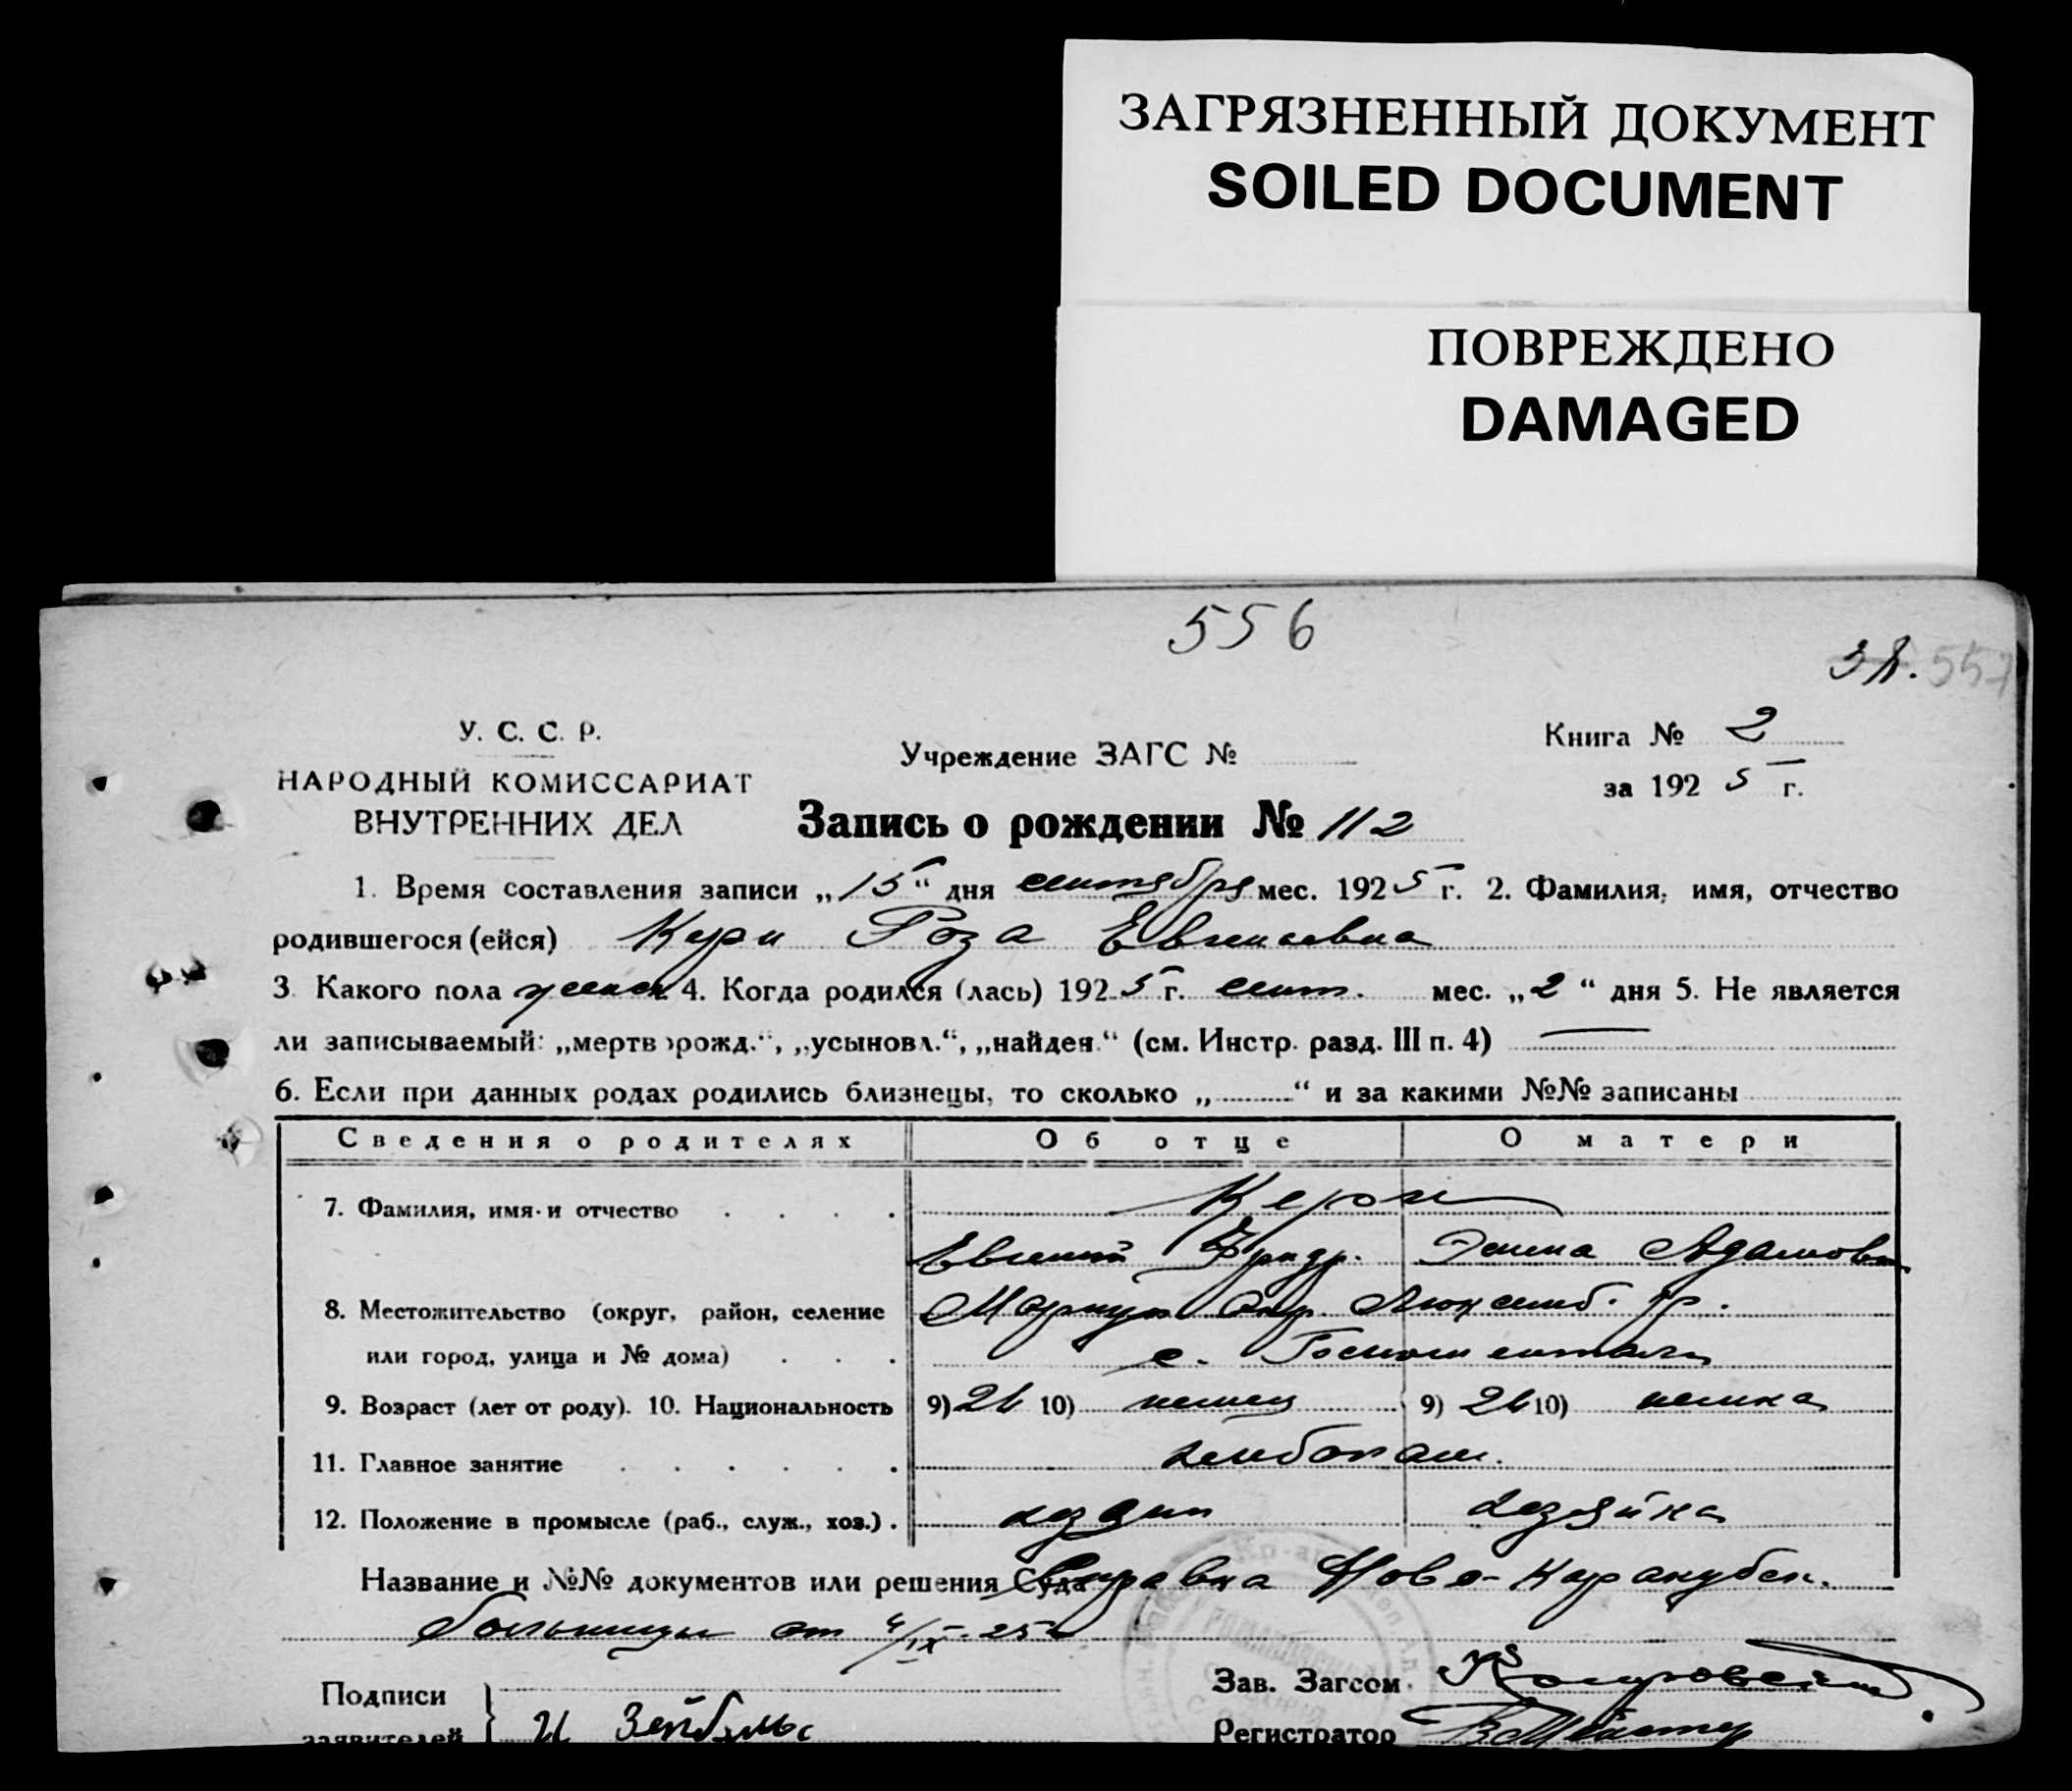 ЗАГРЯЗНЕННЫЙ ДОКУМЕНТ
SOILED DOCUMENT
ПОВРЕЖДЕНО
DAMAGED
556
557
У. С. С. Р.
НАРОДНЫЙ КОМИССАРИАТ
ВНУТРЕННИХ ДЕЛ
Учреждение ЗАГС №
Книга № 2
за 1925 г.
Запись о рождении № 112
1. Время составления записи „15“ дня сентября мес. 1925 г. 2. Фамилия, имя, отчество
родившегося (ейся) Керн Роза Евгеневна
3. Какого пола женск. 4. Когда родился (лась) 1925 г. сент. мес. „2“ дня 5. Не является
ли записываемый: „мертворожд.“, „усыновл.“, „найден.“ (см. Инстр. разд. III п. 4)
6. Если при данных родах родились близнецы, то сколько „ “ и за какими №№ записаны
Сведения о родителях Об отце О матери
7. Фамилия, имя и отчество Керн
Евгений Фридр. Эмма Адамовн
8. Местожительство (округ, район, селение Мариуп Окр. Люксемб. р.
или город, улица и № дома) с.
9. Возраст (лет от роду). 10. Национальность 9) 26 10) немец 9) 26 10) немка
11. Главное занятие хлебопаш.
12. Положение в промысле (раб., служ., хоз.) хозяин хозяйка
Название и №№ документов или решения Суда Справка Ново-Каракубск.
больницы от 4/IX-25
Подписи Зав. Загсом
заявителей И Регистратор